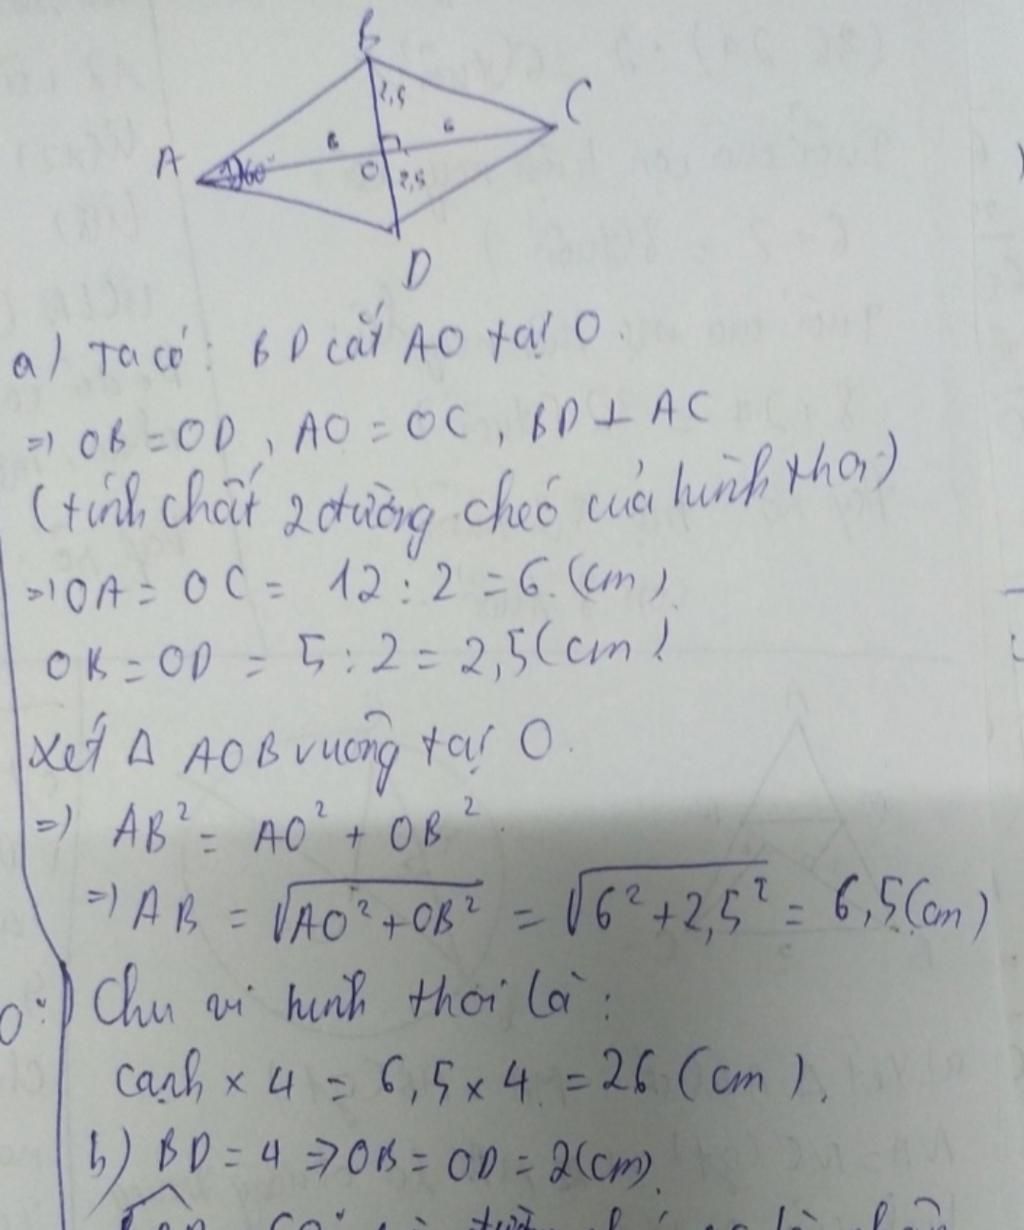 B
2,5
C
A
60°
6
6
O
2,5
D
a) Ta có: BD cắt AO tại O.
=> OB = OD, AO = OC, BD ⊥ AC
(tính chất 2 đường chéo của hình thoi)
=> OA = OC = 12 : 2 = 6 (cm)
OB = OD = 5 : 2 = 2,5 (cm)
Xét Δ AOB vuông tại O.
=> AB² = AO² + OB².
=> AB = √AO² + OB² = √6² + 2,5² = 6,5 (cm)
Chu vi hình thoi là:
cạnh × 4 = 6,5 × 4 = 26 (cm).
b) BD = 4 => OB = OD = 2 (cm).